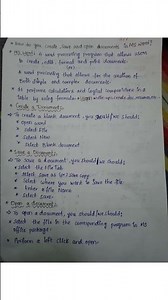 How do you create, save and open documents in MS word?
MS word is a word processing program that allows users
to create, edit, format and print documents
(or)
A word processing that allows for the creation of
both simple and complex documents.
It performs calculations and logical comparisions in a
table by using formulas
Create a Document:
To create a blank document, you should/we should;
Open word
Select File
Select New
Select Blank document
Save a Document:
To save a document, you should/we should;
Select the File tab
Select Save as (or) Save copy.
Select where you want to save the file
Enter a File Name
Select save.
Open a Document:
To open a document, you should/we should;
Select the file to the corresponding program in MS
office package.
Perform a left click and open.